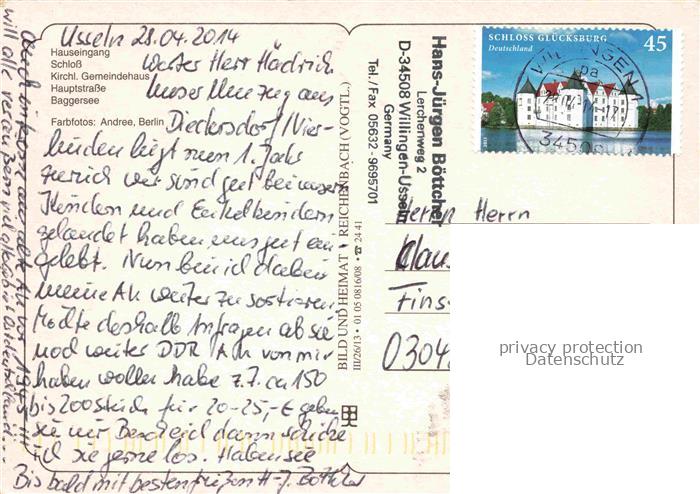 Usseln 28.04.2014
Hauseingang
Schloß
Kirchl. Gemeindehaus
Hauptstraße
Baggersee
Farbfotos: Andree, Berlin
Werter Herr Hädrich
Unser Umzug aus
Dieckersdorf/Vier-
linden liegt nun 1. Jahr
zurück wir sind gut bei unsern
Kindern und Enkelkindern
gelandet haben uns gut ein-
gelebt. Nun bin ich dabei
meine AK weiter zu sortieren
Möchte deshalb Anfragen ob sie
noch weiter DDR AK von mir
haben wollen habe z.Z. ca 150
bis 200 Stück für 20-25,-€ geben
sie mir Bescheid dann schicke
ich sie gerne los. Haben sie
Bis bald mit besten Grüßen H-J. Böttcher
auch Interesse an alte AK vor 1945
will alle veräußern
BILD UND HEIMAT REICHENBACH (VOGTL.)
III/26/13 · 01 05 0816/08 · 24 41
Hans-Jürgen Böttcher
Lerchenweg 2
D-34508 Willingen-Usseln
Germany
Tel./Fax 05632-9695701
SCHLOSS GLÜCKSBURG 45
Deutschland
WILLINGEN
34508
Herrn Herrn
Klaus
Fins
0304
privacy protection
Datenschutz